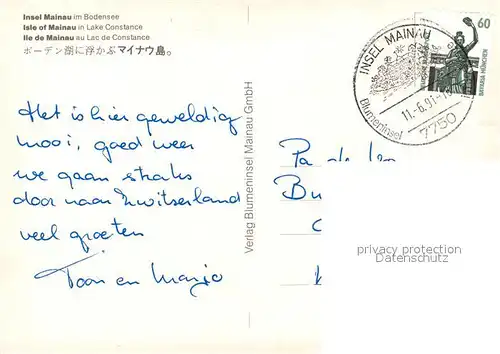 Insel Mainau im Bodensee
Isle of Mainau in Lake Constance
Ile de Mainau au Lac de Constance
ボーデン湖に浮かぶマイナウ島。
Het is hier geweldig
mooi, goed weer
we gaan straks
door naar Zwitserland
veel groeten
Toon en Marjo
Verlag Blumeninsel Mainau GmbH
INSEL MAINAU
11.-6.91
Blumeninsel
7750
60
BAVARIA MÜNCHEN
Bu
privacy protection
Datenschutz